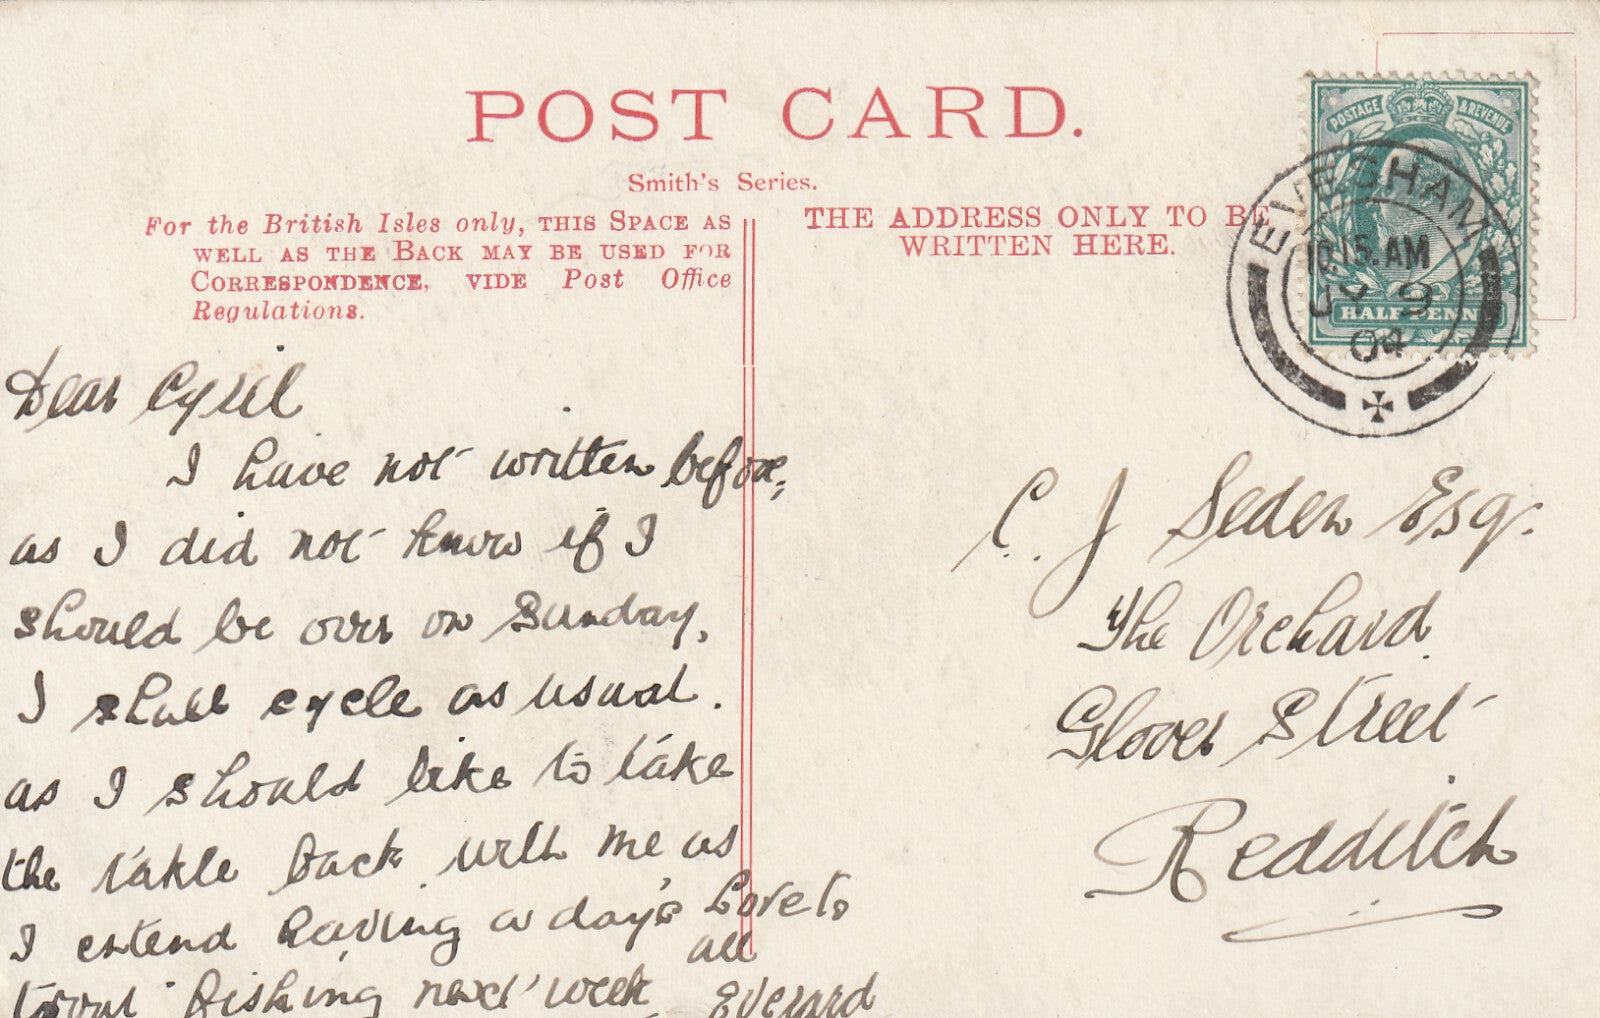 POST CARD.
Smith's Series.
For the British Isles only, THIS SPACE AS
WELL AS THE BACK MAY BE USED FOR
CORRESPONDENCE, VIDE Post Office
Regulations.
THE ADDRESS ONLY TO BE
WRITTEN HERE.
POSTAGE & REVENUE
HALF PENNY
EVESHAM
10.15 AM
JY 9
04
Dear Cyril
I have not written before,
as I did not know if I
should be over on Sunday,
I shall cycle as usual.
as I should like to take
the takle back with me as
I entend having a day's
trout fishing next week
Love to
all
Everard
C. J Seden Esq.
The Orchard
Glover Street
Redditch